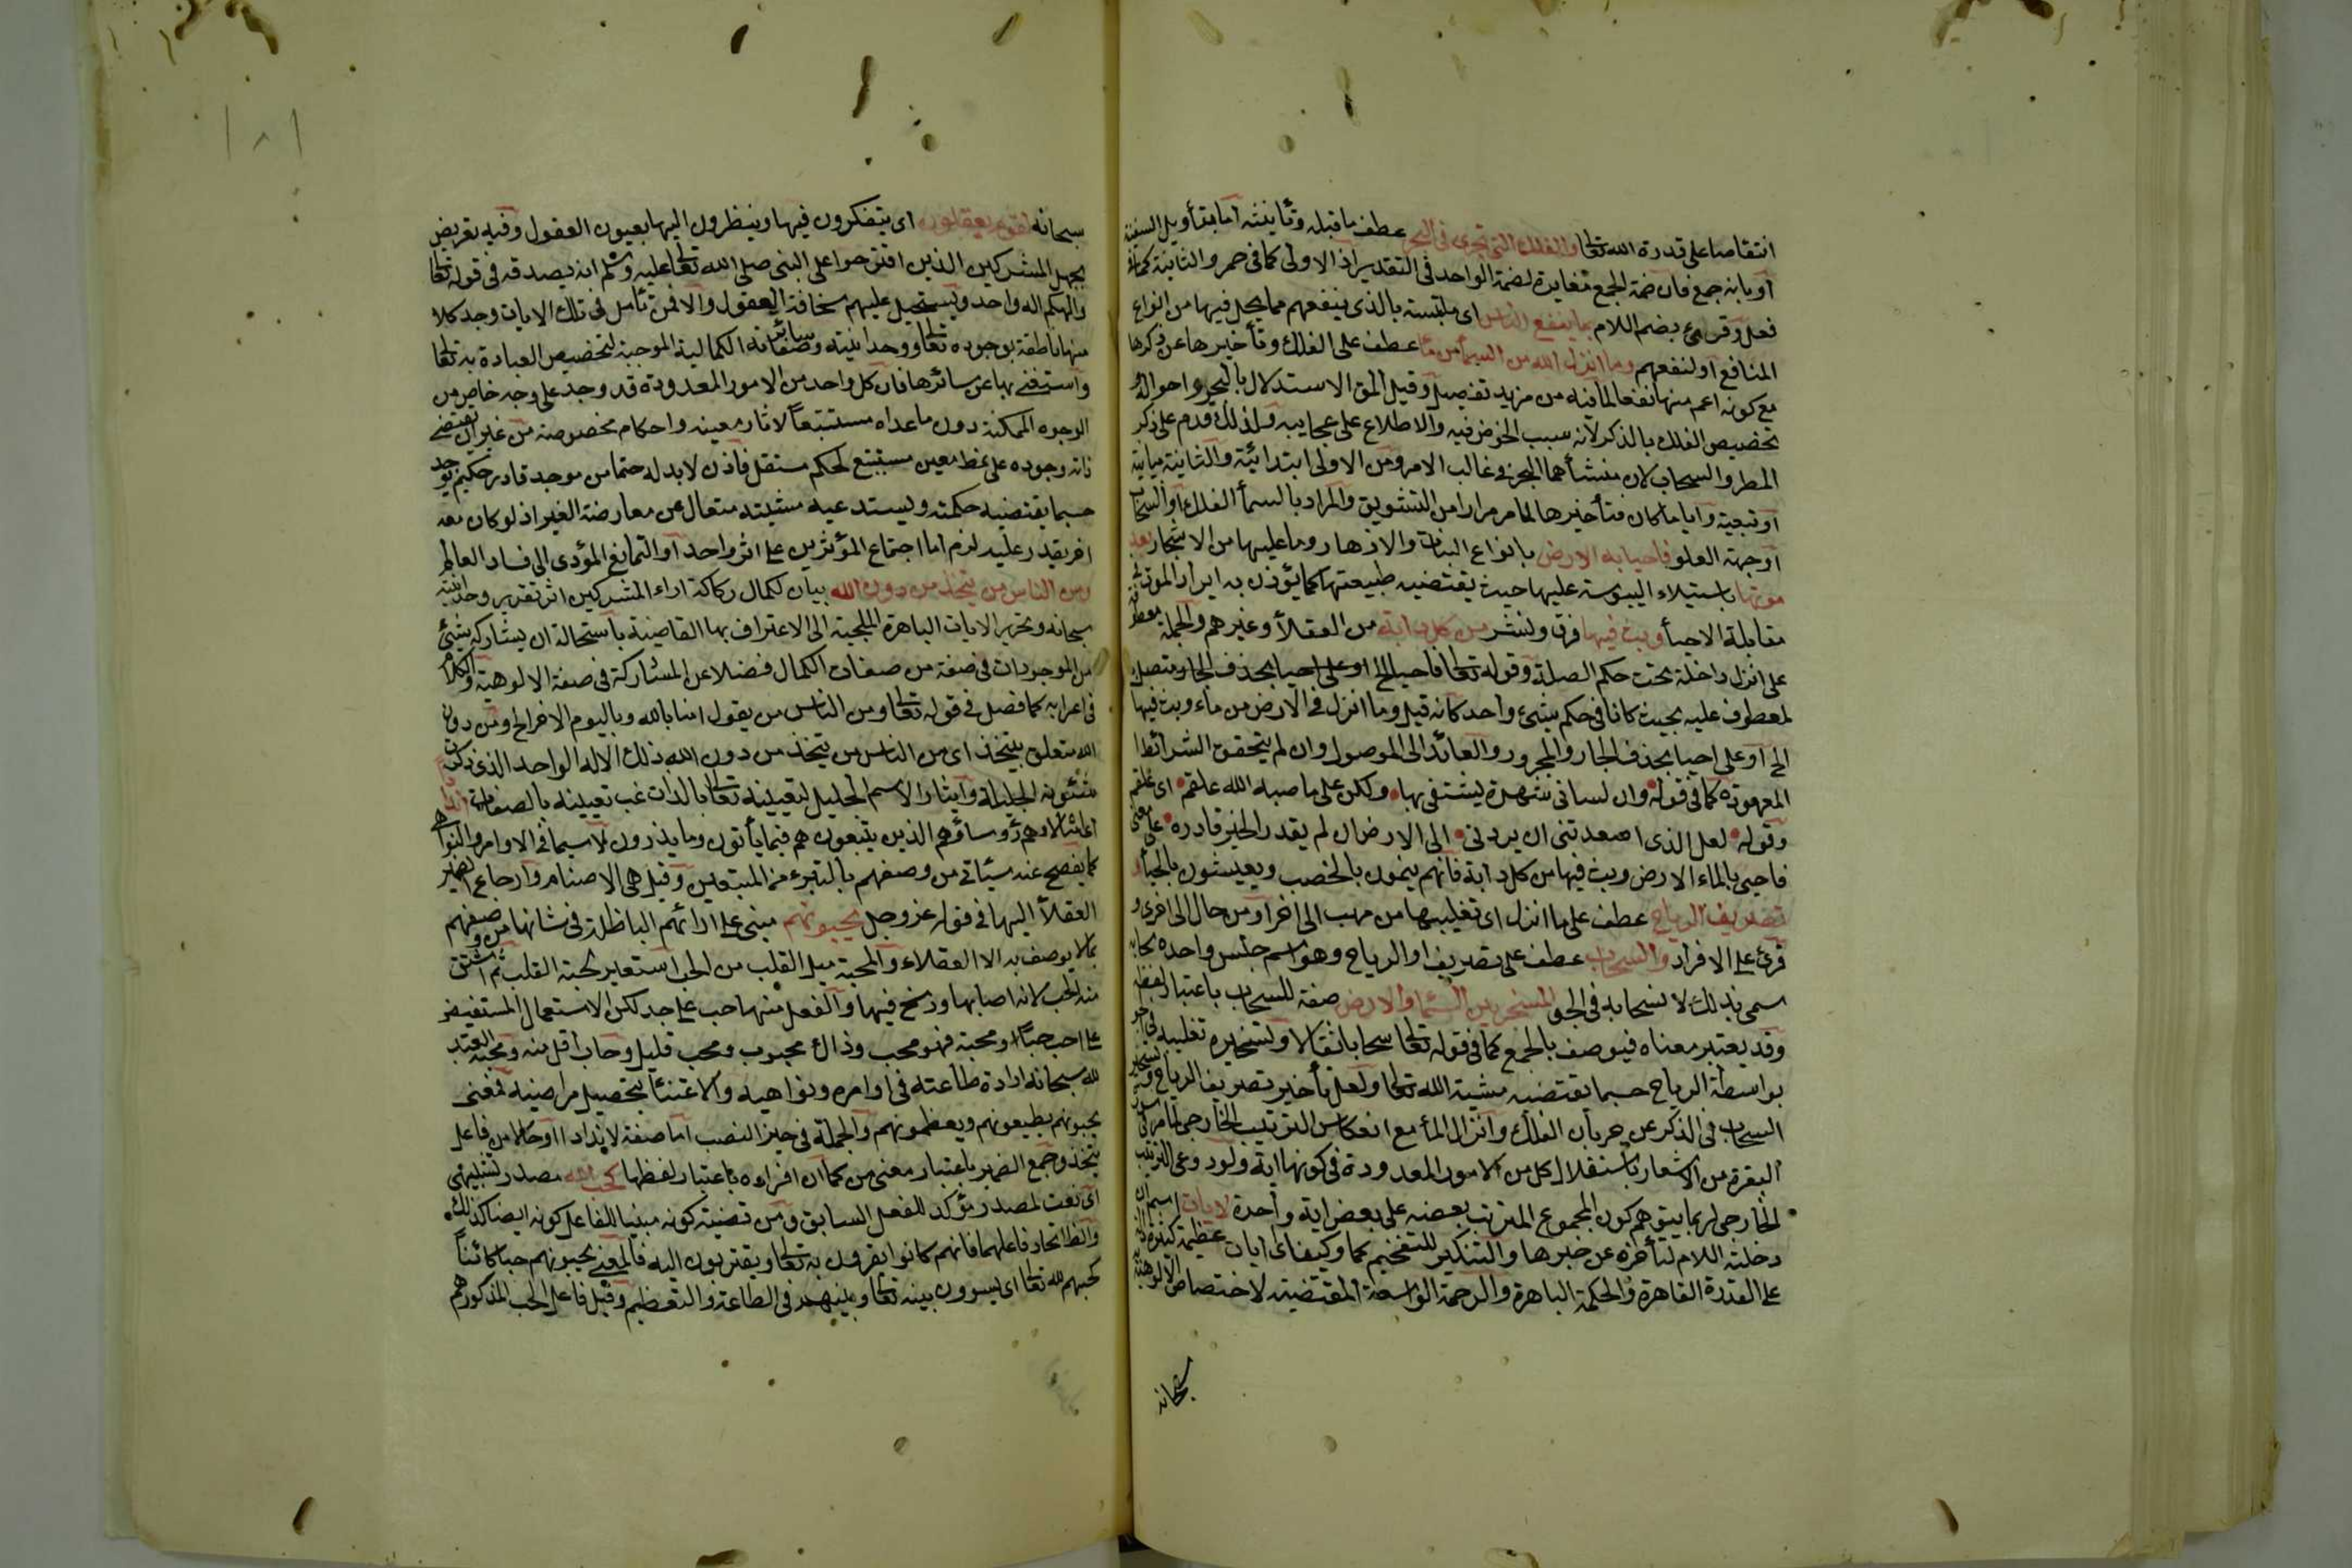 انتقاصا على قدرة الله تعالى والفلك التي تجري في البحر عطف ما قبله وتأنيثه اما بتأويل السفينة
او بانه جمع فان ضمة الجمع مغايرة لضمة الواحد في التقدير اذ الاولى كما في حمر والثانية كما في
فعل وقرئ بضم اللام بما ينفع الناس اي ملتبسة بالذي ينفعهم مما يحمل فيها من انواع
المنافع او لنفعهم وما انزل الله من السماء من ماء عطف على الفلك وتأخيرها عن ذكرها
مع كونه اعم منها نفعا لما فيه من مزيد تفصيل وقيل المق الاستدلال بالبحر واحواله و
تخصيص الفلك بالذكر لانه سبب الخوض فيه والاطلاع على عجايبه ولذلك قدم على ذكر
المطر والسحاب لان منشأهما البحر في غالب الامر ومن الاولى ابتدائية والثانية بيانية
او تبعية وايا ما كان فتأخيرها لما مر مرارا من التشويق والمراد بالسماء الفلك او السحاب
او جهة العلو فاحيا به الارض بانواع النبات والازهار وما عليها من الاشجار بعد
موتها باستيلاء اليبوسة عليها حيث يقتضيه طبيعتها كما يؤذن به ايراد الموت في
مقابلة الاحياء وبث فيها فرق ونشر من كل دابة من العقلاء وغيرهم والجملة معطوفة
على انزل داخلة تحت حكم الصلة وقوله تعالى فاحيا الخ او على احيا بحذف الجار متصل
لمعطوف عليه بحيث كانا في حكم شيئ واحد كانه قيل وما انزل في الارض من ماء وبث فيها
الخ او على احيا بحذف الجار والمجرور والعائد الى الموصول وان لم يتحقق الشرائط
المعهودة كما في قوله وان لساني شهدة يشتفى بها ولكن على ما صبه الله علقم اي علقم
وقوله لعل الذي اصعدتني ان يردني الى الارض ان لم يقدر الخير قادره على معنى
فاحيى بالماء الارض وبث فيها من كل دابة فانهم ينمون بالخصب ويعيشون بالحياء و
تصريف الرياح عطف على ما انزل اي تقليبها من مهب الى اخر او من حال الى اخرى و
قرئ على الافراد والسحاب عطف على تصريف او الرياح وهو اسم جنس واحده سحابة
سمي بذلك لانسحابه في الجو المسخر بين السماء والارض صفة للسحاب باعتبار لفظه
وقد يعتبر معناه فيوصف بالجمع كما في قوله تعالى سحابا ثقالا وتسخيره تقليبه في الجو
بواسطة الرياح حسبما تقتضيه مشيئة الله تعالى ولعل تأخير تصريف الرياح وتسخير
السحاب في الذكر عن جريان الفلك وانزال الماء مع انعكاس الترتيب الخارجي لما مر في سورة
البقرة من الاشعار باستقلال كل من الامور المعدودة في كونها اية ولو روعي الترتيب
الخارجي لربما يتوهم كون المجموع المترتب بعضه على بعض اية واحدة لايات اسم ان
دخلته اللام لتأخره عن خبرها والتنكير للتفخيم كما وكيفا اي ايات عظيمة كثيرة دالة
على القدرة القاهرة والحكمة الباهرة والرحمة الواسعة المقتضية لاختصاص الالوهية به
سبحانه
١٨١
سبحانه لقوم يعقلون اي يتفكرون فيها وينظرون اليها بعيون العقول وفيه تعريض
بجهل المشركين الذين اقترحوا على النبي صلى الله تعالى عليه وسلم اية يصدقه في قوله تعالى
والهكم اله واحد ويستجيل عليهم سخافة العقول والا فمن تأمل في تلك الايات وجد كلا
منها ناطقة بوجوده تعالى ووحدانيته وسائر صفاته الكمالية الموجبة لتخصيص العبادة به تعالى
واستغنى بها عن سائرها فان كل واحد من الامور المعدودة قد وجد على وجه خاص من
الوجوه الممكنة دون ما عداه مستتبعا لاثار معينة واحكام مخصوصة من غير ان تقتضي
ذاته وجوده على نمط معين مستتبع لحكم مستقل فاذن لا بد له حتما من موجد قادر حكيم يوجده
حسبما يقتضيه حكمته ويستدعيه مشيئته متعال عن معارضة الغير اذ لو كان معه
اخر يقدر عليه لزم اما اجتماع المؤثرين على اثر واحد او التمانع المؤدي الى فساد العالم
ومن الناس من يتخذ من دون الله بيان لكمال ركاكة اراء المشركين اثر تقرير وحدانيته
سبحانه وتحرير الايات الباهرة الملجئة الى الاعتراف بها القاضية باستحالة ان يشاركه شيئ
من الموجودات في صفة من صفات الكمال فضلا عن المشاركة في صفة الالوهية والكلام
في اعرابه كما فصل في قوله تعالى ومن الناس من يقول امنا بالله وباليوم الاخر الخ ومن دون
الله متعلق بيتخذ اي من الناس من يتخذ من دون الله ذلك الاله الواحد الذي ذكرت
شئونه الجليلة وايثار الاسم الجليل لتعيينه تعالى بالذات غب تعيينه بالصفات اندادا
امثالا وهم رؤساؤهم الذين يتبعونهم فيما يأتون وما يذرون لا سيما في الاوامر والنواهي
كما يفصح عنه سيأتي من وصفهم بالتبرء من المتبعين وقيل هي الاصنام وارجاع الضمير
العقلاء اليها في قوله عز وجل يحبونهم مبني على ارائهم الباطلة في شانها من وصفهم
بما لا يوصف به الا العقلاء والمحبة ميل القلب من الحب استعير لحبة القلب ثم اشتق
منه الحب لانه اصابها ورسخ فيها والفعل منها حب على حد لكن الاستعمال المستفيض
على احب حبا ومحبة فهو محب وذاك محبوب ومحب قليل وحاب اقل منه ومحبة العبد
لله سبحانه ارادة طاعته في اوامره ونواهيه والاعتناء بتحصيل مراضيه فمعنى
يحبونهم يطيعونهم ويعظمونهم والجملة في حيز النصب اما صفة لاندادا او حال من فاعل
يتخذ وجمع الضمير باعتبار معنى من كما ان افراده باعتبار لفظها كحب الله مصدر تشبيهي
اي نعت لمصدر مؤكد للفعل السابق ومن قضية كونه مبنيا للفاعل كونه ايضا كذلك
والظ اتحاد فاعلهما فانهم كانوا يقرون به تعالى ويتقربون اليه فالمعنى يحبونهم حبا كائنا
كحبهم لله تعالى اي يسوون بينه تعالى وبينهم في الطاعة والتعظيم وقيل فاعل الحب المذكور هم